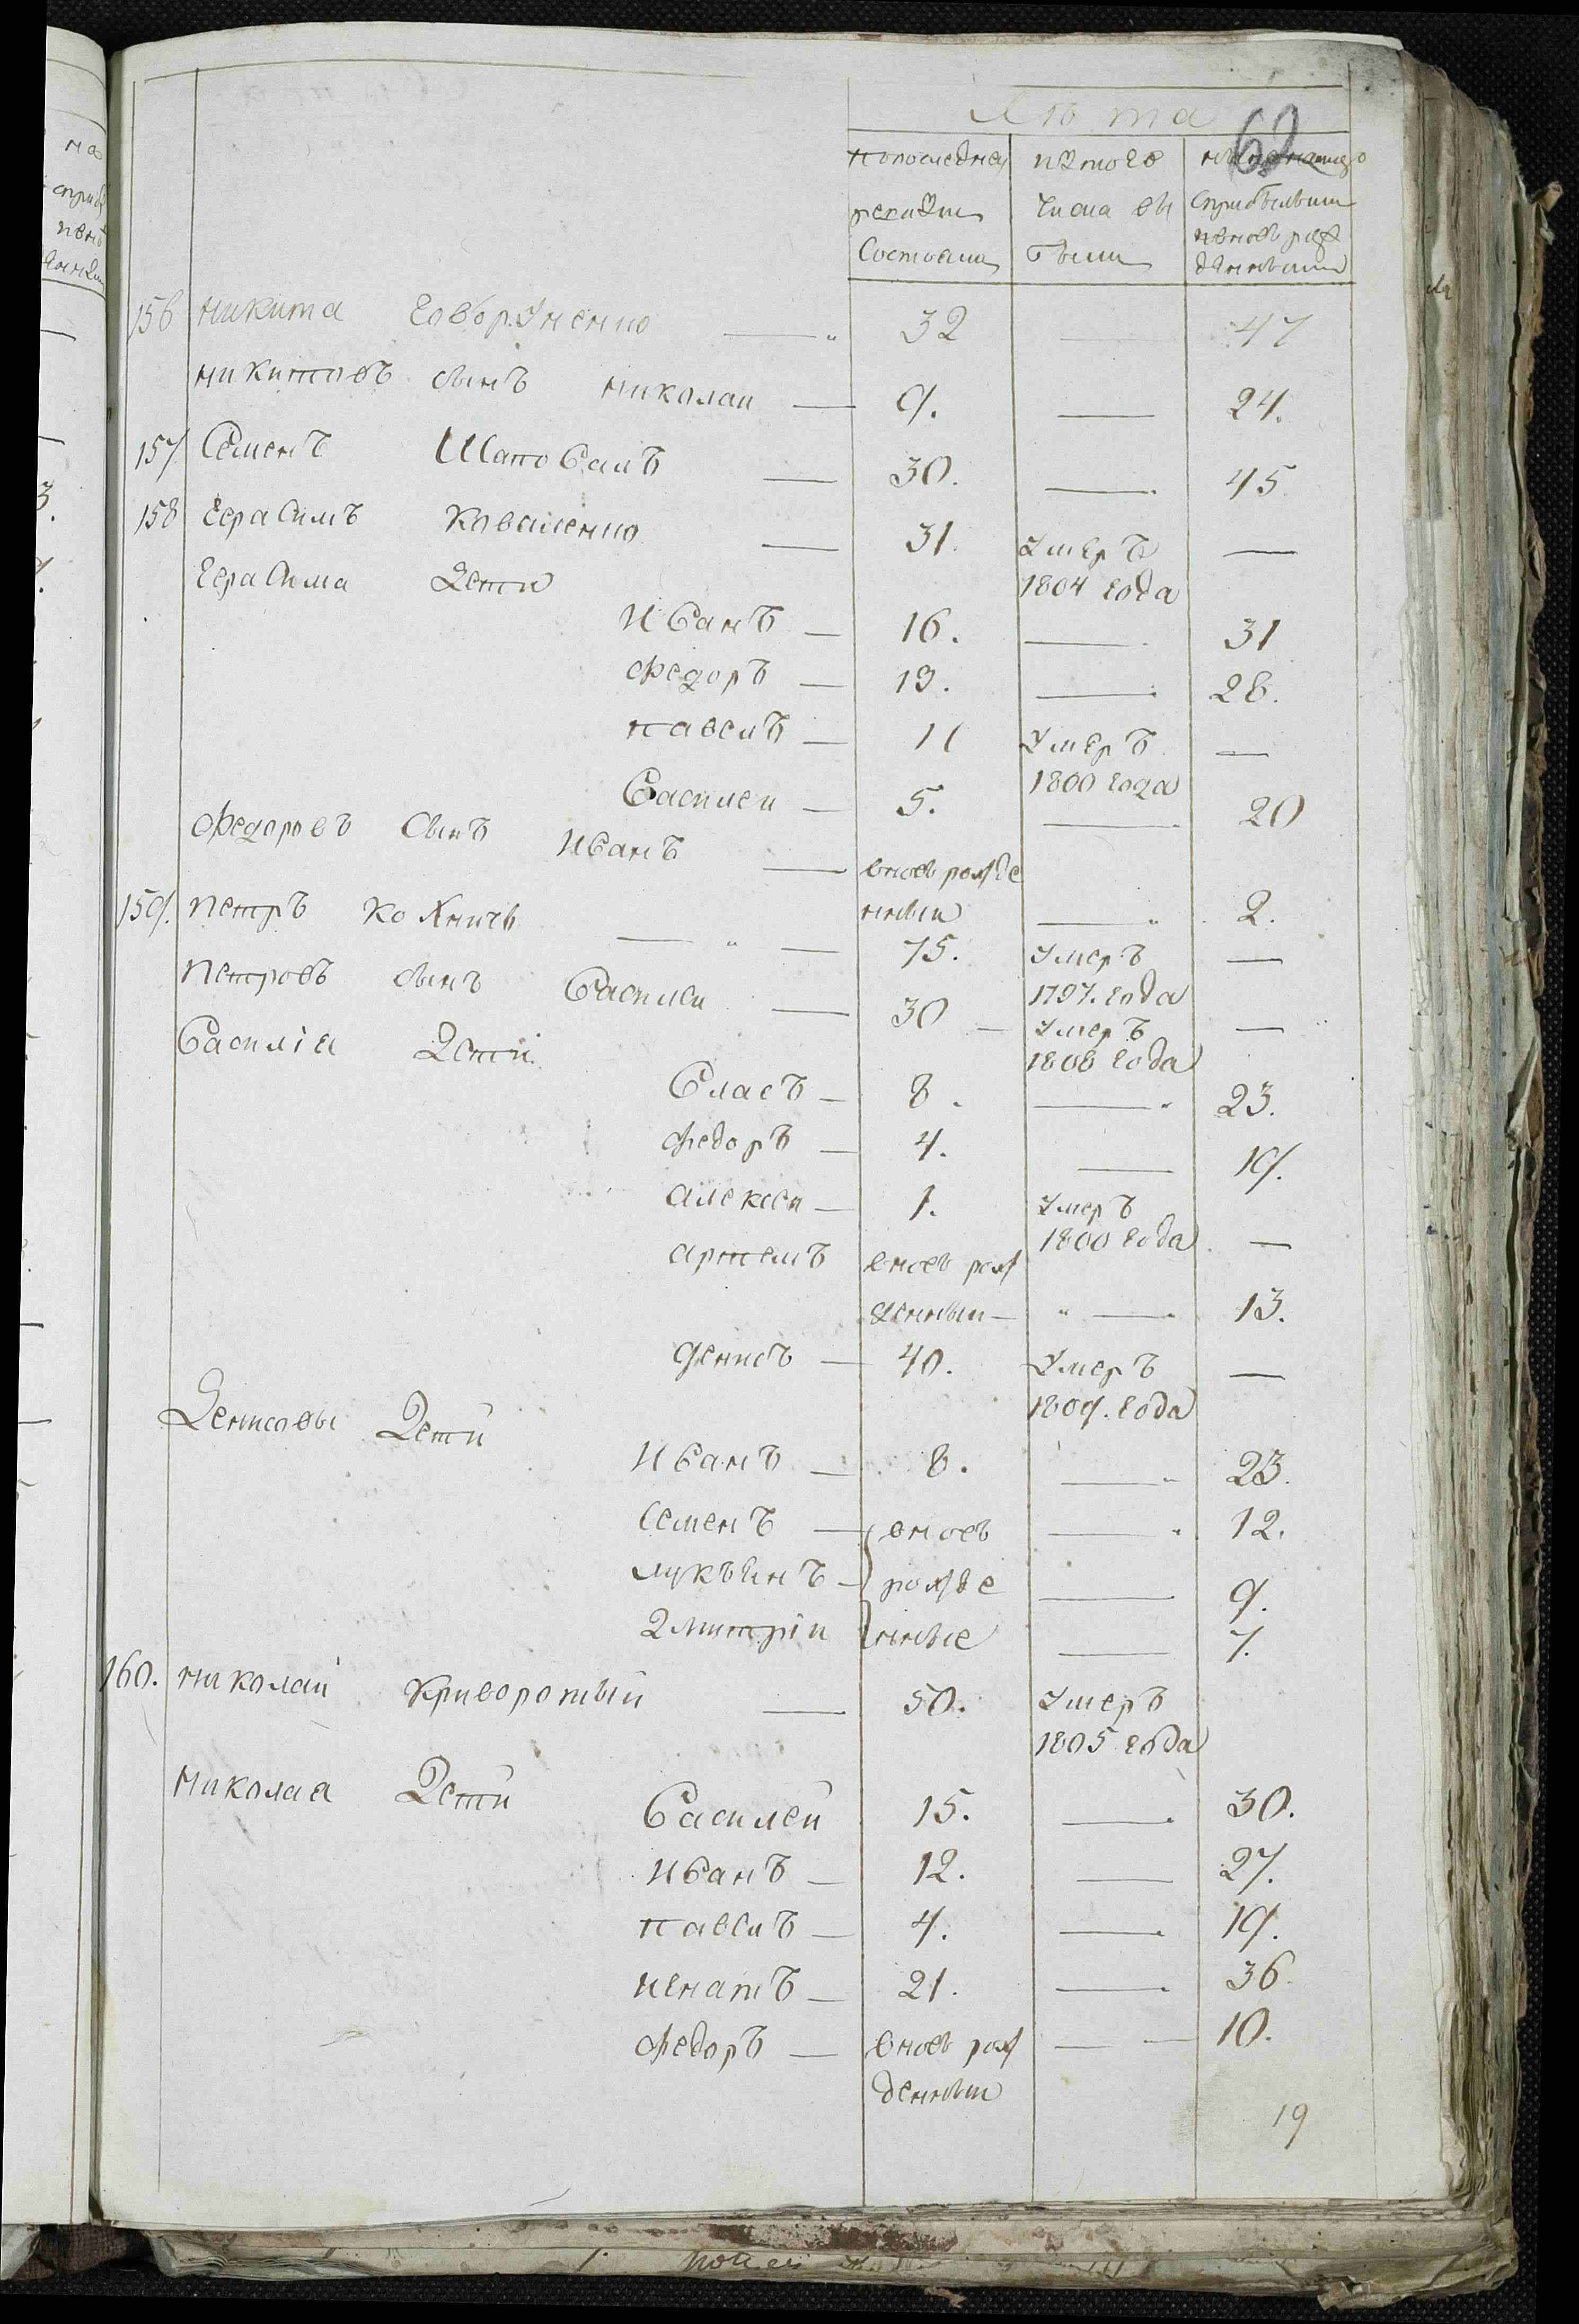 Лѣта
62
попоследней
ревизии
Состояли
изтого
Числа вы
были
ныне налицо
сприбылыми
ивновь рож
денными
156 никита говоруненко — 32 — 47
никитовъ сынъ николаи — 9. — 24.
157 Семенъ Шаповалъ — 30. — 45
158 герасимъ коваленко — 31. умеръ —
герасима дети 1804 года
Иванъ — 16. — 31
федоръ — 13. — 28.
павелъ — 11 умеръ —
1800 года
василеи — 5. — 20
федоровъ сынъ Иванъ — вновь рожде
нныи — 2.
159. петръ — 75. умеръ —
1797. года
петровъ сынъ василеи — 30 — умеръ —
1808 года
василіа дети
власъ — 8. — 23.
федоръ — 4. — 19.
алексеи — 1. умеръ
1800 года —
артемъ вновь рож
денныи — 13.
денисъ — 40. умеръ —
1809. года
денисовы дети
Иванъ — 8. — 23.
семенъ — вновь — 12.
лукъянъ — рожде — 9.
дмитріи нные — 7.
160. николай криворотый — 50. умеръ
1805 года
николаа дети василей 15. — 30.
иванъ — 12. — 27.
павелъ — 4. — 19.
игнатъ — 21. — 36.
федоръ — вновь рож — 10.
денныи
19